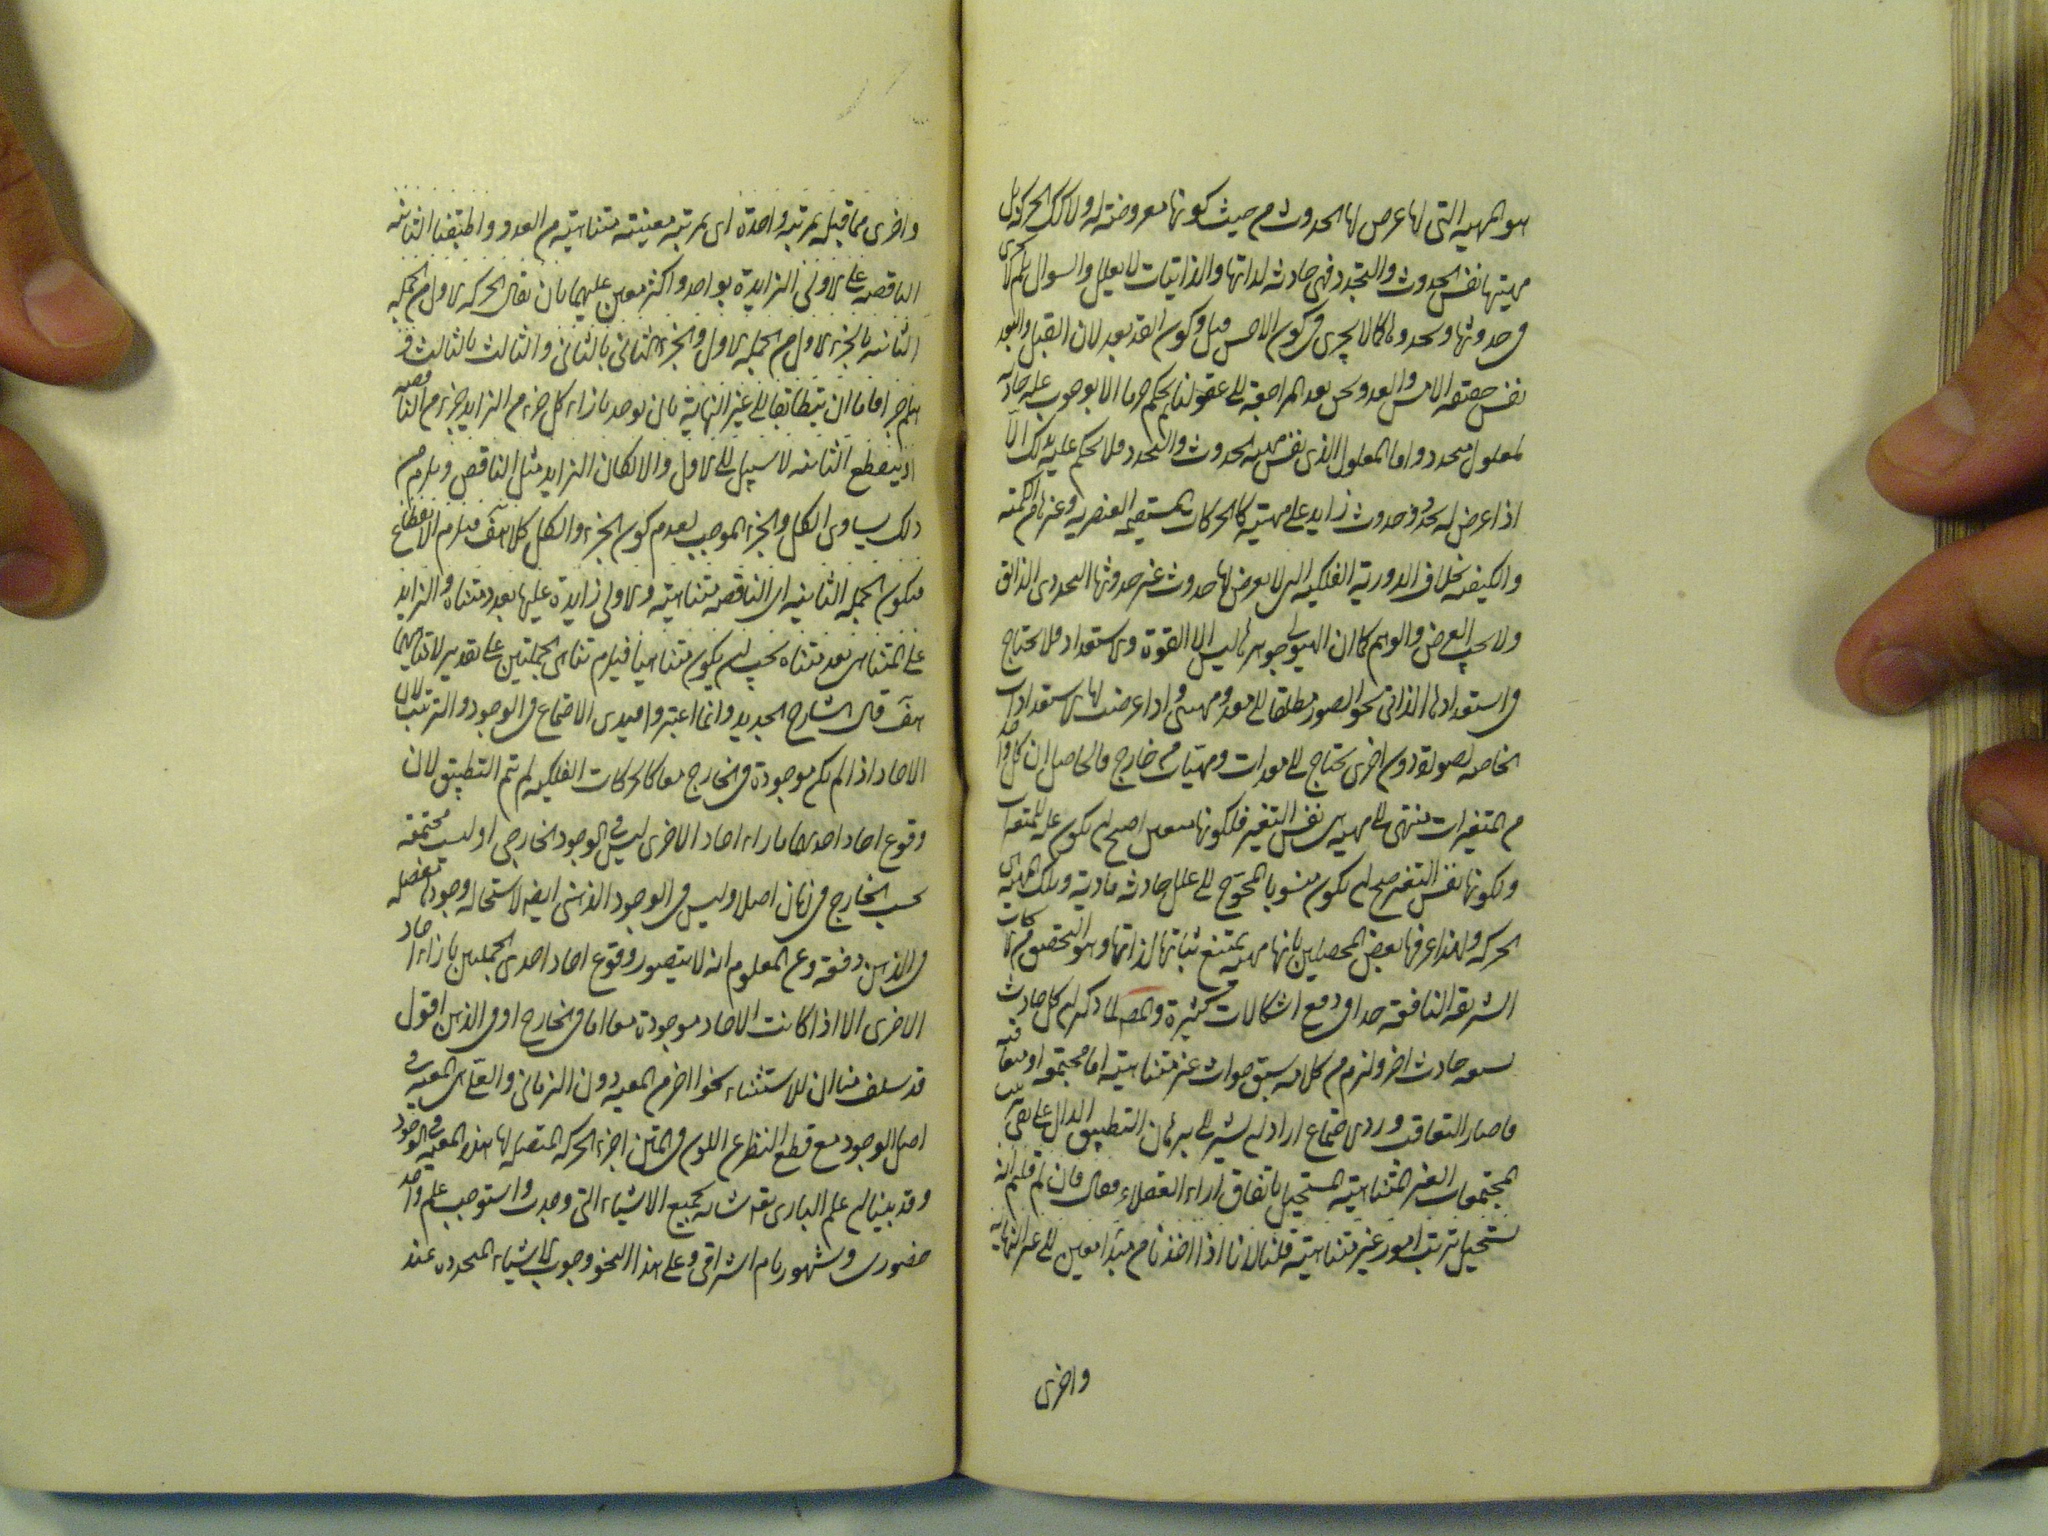 هو المهية التى لها عرض لها الحدوث من حيث كونها معروضة له ولا كذلك الحركة بل
مهيتها نفس الحدوث والتجدد فهى حادثة لذاتها والذاتيات لا يعلل والسوال بلم لا يجرى
فى حدوثها وتجددها كما لا يجرى فى كون الامس قبل وكون الغد بعد لان القبل والبعد
نفس حقيقة الامس والغد ونحن بعد المراجعة الى عقولنا نحكم جزما الا بوجوب علة حادثة
لمعلول متجدد واما المعلول الذى نفس مهيته الحدوث والتجدد فلا نحكم عليه بذلك الا
اذا عرض له تجدد وحدوث زايد على مهيته كالحركات المستقيمة العنصرية وغيرها من الكمية
والكيفية بخلاف الدورية الفلكية التى لا يعرض لها حدوث غير حدوثها التجددى الذاتى
ولا بحسب الفرض والوهم كما ان الهيولى جوهرها ليس الا القوة والاستعداد فلا يحتاج
فى استعدادها الذاتى نحو الصور مطلقا الى معد ومهيئ واذا عرضت لها الاستعدادات
الخاصة لصورة دون اخرى يحتاج الى معدات ومهيئات من خارج فالحاصل ان كل واحد
من المتغيرات ينتهى الى مهية هى نفس التغير فلكونها اصح ان يكون علة للمتغيرات
ولكونها نفس التغير صح ان يكون المحوج الى علل حادثة مادية وتلك المهية هى
الحركة ولهذا عرفها بعض المحصلين بانها مهية يمتنع ثباتها لذاتها وهو التحقيق من
الشريفة النافعة جدا فى دفع اشكالات كثيرة والمص لما ذكر ان كل حادث
يسبقه حادث اخر ولزم من كلامه سبق حوادث غير متناهية اما مجتمعة او متعاقبة
فاختار التعاقب ورد الاجتماع اراد ان يشير الى برهان التطبيق الدال على نفى ترتب
المجتمعات الغير المتناهية المستحيل باتفاق آراء العقلاء فقال فان قيل لم قلتم انه
يستحيل ترتب امور غير متناهية قلنا لانا اذا اخذنا من مبدأ معين الى غير النهاية
واخرى
واخرى مما قبله بمرتبة واحدة اى بمرتبة معينة متناهية من العدد واطبقنا الثانية
الناقصة على الاولى الزايدة بواحد واكثر معين عليهما بان نقابل الجزء الاول من الجملة
الثانية بالجزء الاول من الجملة الاولى والجزء الثانى بالثانى والثالث بالثالث و
هلم جرا فاما ان يتطابقا الى غير النهاية بان يوجد بازاء كل جزء من الزايد جزء من الناقصة
او ينقطع الثانية لا سبيل الى الاول والا لكان الزايد مثل الناقص ويلزم من
ذلك تساوى الكل والجزء الموجب لعدم كون الجزء والكل كلا هف فيلزم الانقطاع
فيكون الجملة الثانية اى الناقصة متناهية والاولى زايدة عليها بعدد متناه والزايد
على المتناهى بعدد متناه يجب ان يكون متناهيا فيلزم تناهى الجملتين على تقدير لا تناهيهما
هف قال الشارح الجديد وانما اعتبروا قيدى الاجتماع فى الوجود والترتب لان
الاحاد اذا لم يكن موجودة فى الخارج معا كالحركات الفلكية لم يتم التطبيق لان
وقوع احاد احديهما بازاء احاد الاخرى ليس فى الوجود الخارجى اذ ليست مجتمعة
بحسب الخارج فى زمان اصلا وليس فى الوجود الذهنى ايضا لاستحالة وجودها مفصلة
فى الذهن دفعة ومن المعلوم انه لا يتصور وقوع احاد احدى الجملتين بازاء احاد
الاخرى الا اذا كانت الاحاد موجودة معا اما فى الخارج او فى الذهن اقول
قد سلف منا ان للاشياء نحوا اخر من المعية دون الزمانى والعلى هى المعية فى
اصل الوجود مع قطع النظر عن الكون فى اجزاء الحركة المتصلة لها هذه المعية فى الوجود
وقد بينا ان علم البارى تعالى شانه بجميع الاشياء التى وجدت واستوجب علم واحد
حضورى وشهود تام اشراقى وعلى هذا النحو وجوب الاشياء المتجددة عند